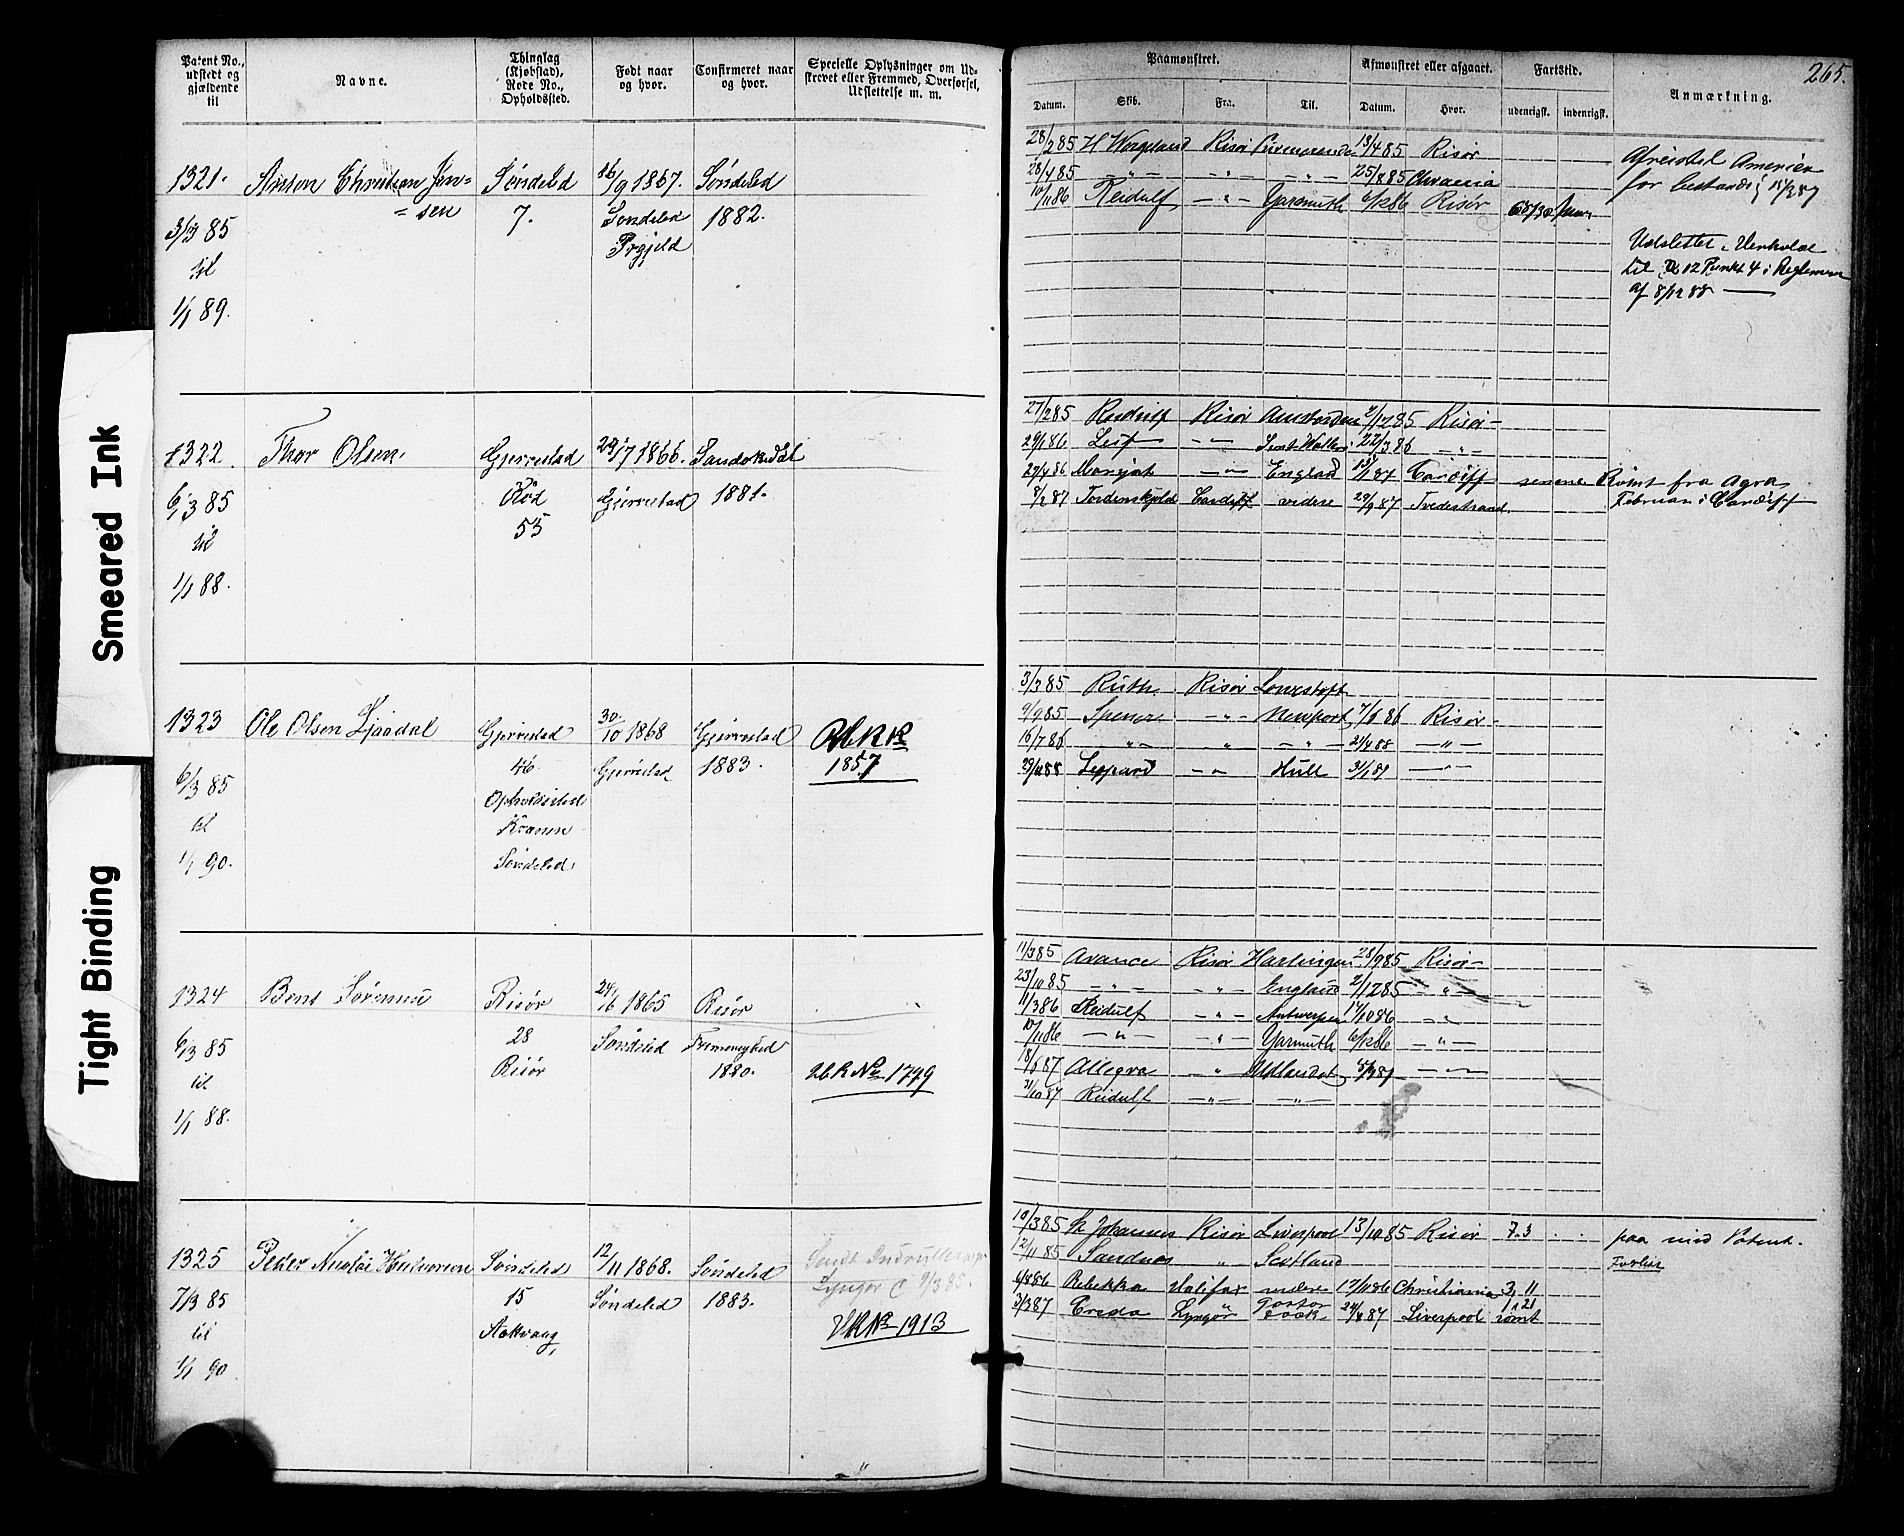 Smeared Ink
Tight Binding
265.
Patent No., udstedt og gjældende til
Navne.
Thinglag (Kjøbstad), Rode No., Opholdssted.
Født naar og hvor.
Confirmeret naar og hvor.
Specielle Oplysninger om Udskrevet eller Fremmed, Overførsel, Udslettelse m. m.
Paamønstret.
Afmønstret eller afgaaet.
Fartstid.
Anmærkning.
Datum. Skib. Fra. Til. Datum. Hvor. udenrigsk. indenrigsk.
1321. Anton Christian Jen= Søndeled 16/9 1867. Søndeled
= sen 7. Søndeled 1882.
3/3 85 Prgjeld
til
1/1 89.
28/2 85 H Wergeland Risør 13/4 85 Risør
28/4 85 -„- -„- -„- 25/8 85 Chrania
10/11 86 Reidulf -„- Yarmuth 6/12 86 Risør
Afreist til America
for bestandig 15/3 87
Udslettet i Henhold
til § 12 Punkt 4 i Reglement
af 8/12 88
1322. Thor Olsen Gjerrestad 29/7 1866. Sandøkedal
Rød Gjerrestad 1881.
6/3 85 55
til
1/1 88.
27/2 85 Reidulf Risør 2/12 85 Risør
29/1 86 Leif -„- 22/3 86 -„-
29/4 86 -„- England 13/1 87 Cardiff
8/2 87 Tordenskjold Cardiff videre 29/9 87 Tvedestrand
Rømt fra Agra
Februar i Cardiff
1323 Ole Olsen Ljaadal Gjerrestad 30/10 1868 Gjerrestad
46. Gjerrestad 1883.
6/3 85 Opholdssted 1857
til Kranen
1/1 90. Søndeled
3/3 85 Ruth Risør Lowestoft
9/9 85 Spencer -„- Newport 7/1 86 Risør
16/7 86 -„- „ -„- 21/4 88 -„-
Leopard -„- Hull -„-
1324 Bent Sørensen Risør 24/6 1865 Risør
28 Søndeled
6/3 85 Risør 1880.
til
1/1 88.
No 1749
11/3 85 Avance Risør Harlingen 28/9 85 Risør
23/10 85 -„- -„- England 2/12 85 -„-
11/3 86 Reidulf -„- Antwerpen 14/10 86 -„-
10/11 86 -„- -„- Yarmuth 6/12 86 -„-
18/1 87 Allegra „ Udlandet -„-
21/10 87 Reidulf -„- -„-
1325 Peder Nicolai Halvorsen Søndeled 12/11 1868. Søndeled
15 Søndeled 1883.
7/3 85 Aakvaag,
til
1/1 90
Lyngør 9/3 85.
1913
10/3 85 St Johannes Risør Liverpool 13/10 85 Risør 7.3
12/11 85 Sandnæs „ Scotland
6/8 86 Rebekka Halifax videre 17/11 86 Christiania 3, 11
3/3 87 Creda Lyngør 24/4 87 Liverpool 1, 21
rømt
paa med Patent.
Forlist